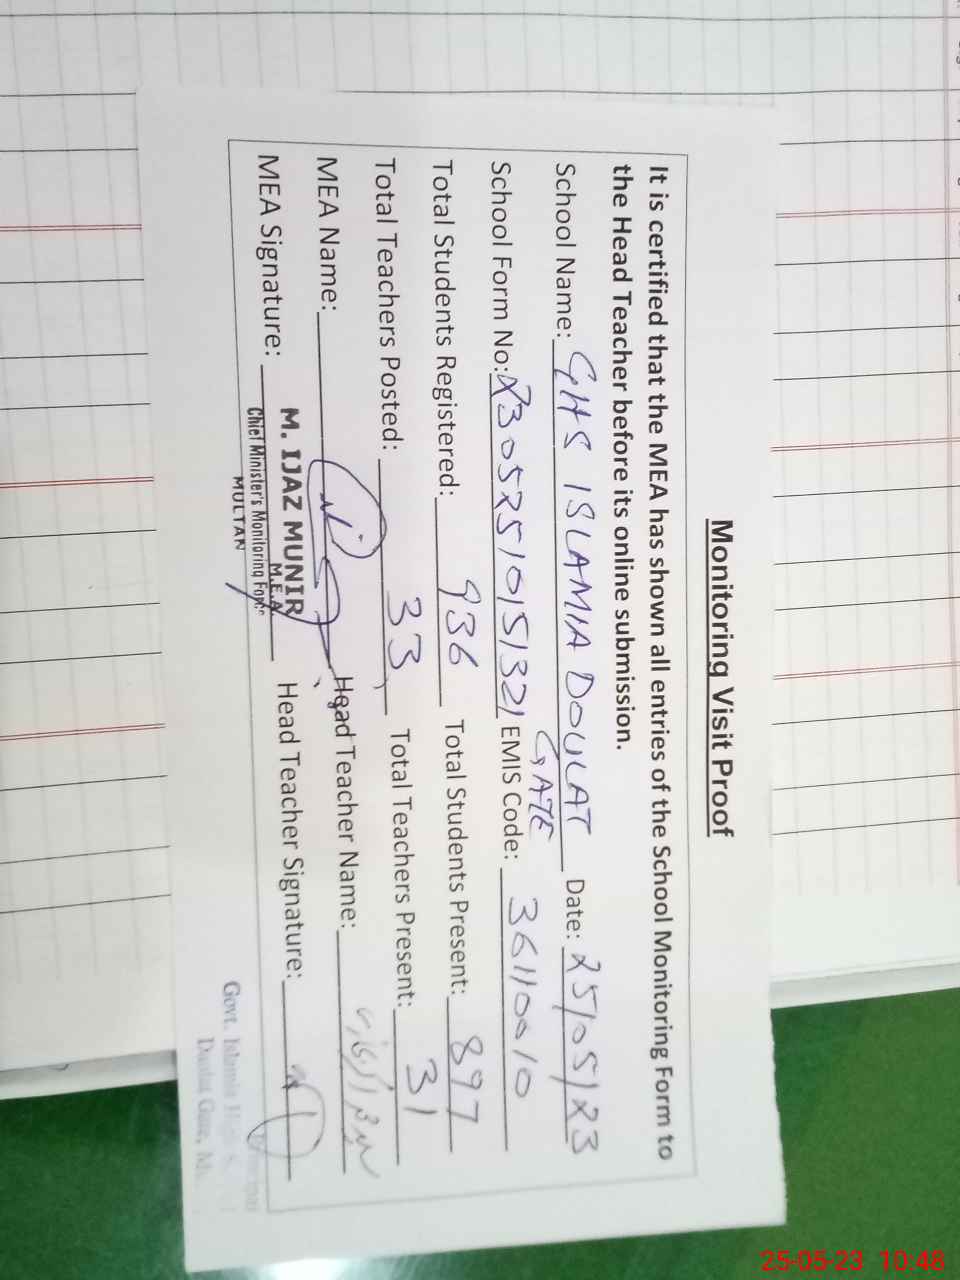 Monitoring Visit Proof
It is certified that the MEA has shown all entries of the School Monitoring Form to
the Head Teacher before its online submission.
School Name: GHS ISLAMIA DOULAT GATE Date: 25/05/23
School Form No: 23052510151321 EMIS Code: 36110010
Total Students Registered: 936 Total Students Present: 897
Total Teachers Posted: 33 Total Teachers Present: 31
MEA Name: Head Teacher Name:
MEA Signature: Head Teacher Signature:
M. IJAZ MUNIR
M.E.A
Chief Minister's Monitoring Force
MULTAN
Govt. Islamia High
Daulat Gate,
25-05-23 10:48